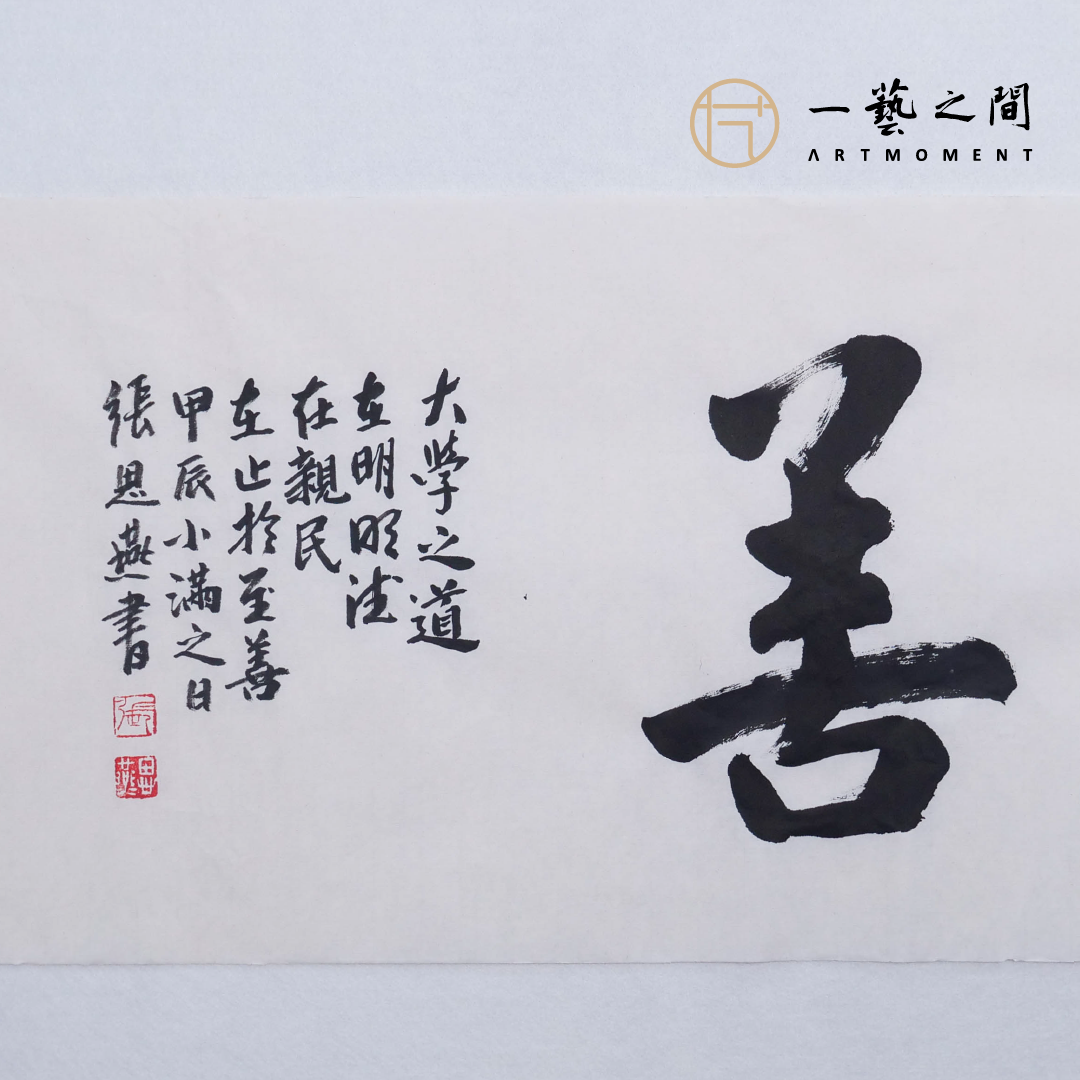 一藝之間
ARTMOMENT
善
大學之道
在明明德
在親民
在止於至善
甲辰小滿之日
張恩燕書
張
恩燕